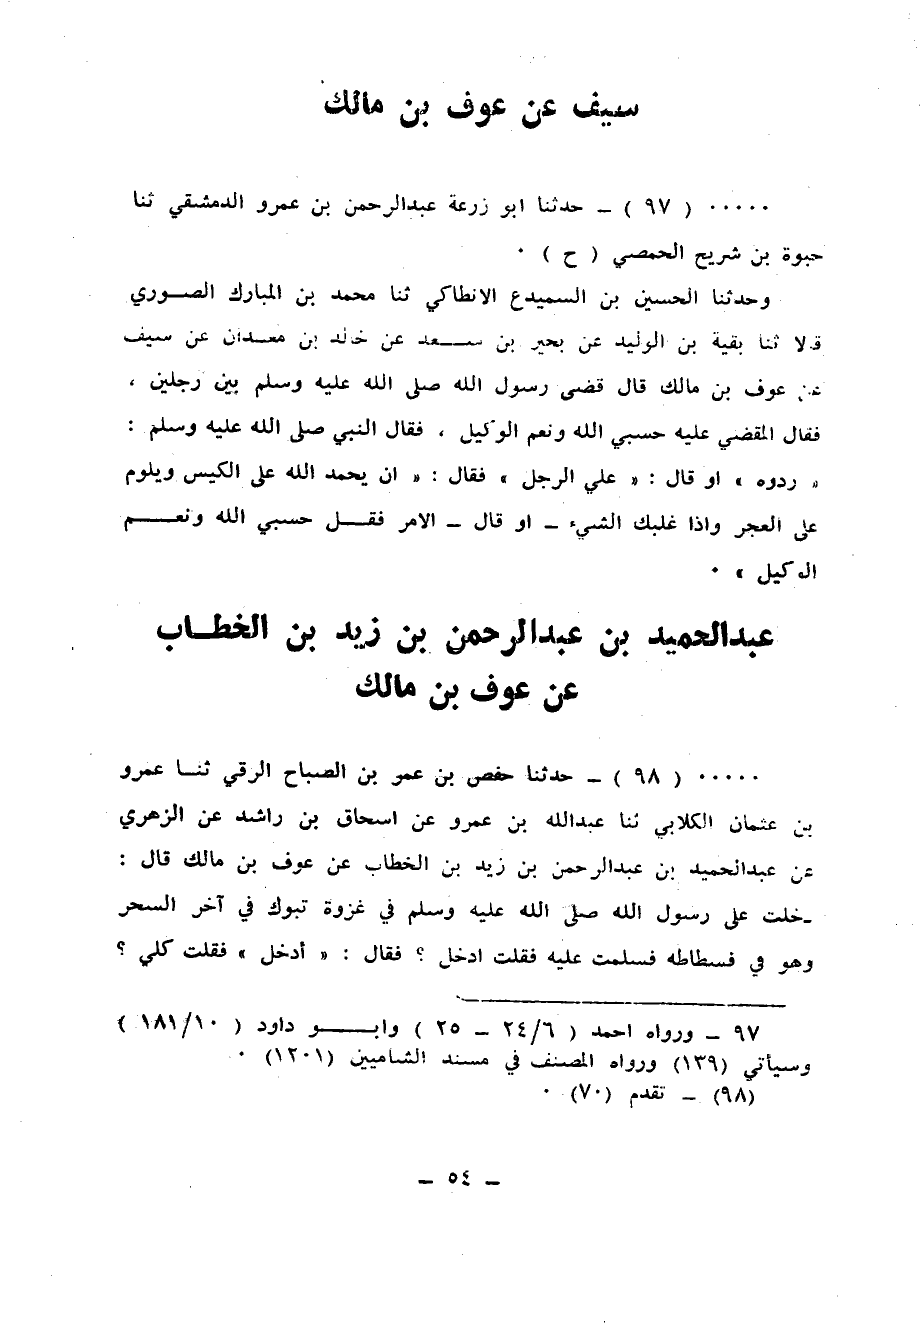 سيف عن عوف بن مالك
٠٠٠٠٠ ( ٩٧ ) ــ حدثنا ابو زرعة عبدالرحمن بن عمرو الدمشقي ثنا
حيوة بن شريح الحمصي ( ح ) ٠
وحدثنا الحسين بن السميدع الانطاكي ثنا محمد بن المبارك الصـــوري
قالا ثنا بقية بن الوليد عن بحير بن ســـعد عن خالد بن معـدان عن سيف
عن عوف بن مالك قال قضى رسول الله صلى الله عليه وسلم بين رجلين ،
فقال المقضي عليه حسبي الله ونعم الوكيل ، فقال النبي صلى الله عليه وسلم :
« ردوه » او قال : « علي الرجل » فقال : « ان يحمد الله على الكيس ويلوم
على العجر واذا غلبك الشيء ــ او قال ــ الامر فقـــل حسبي الله ونعـــــم
الوكيل » ٠
عبدالحميد بن عبدالرحمن بن زيد بن الخطــاب
عن عوف بن مالك
٠٠٠٠٠ ( ٩٨ ) ــ حدثنا حفص بن عمر بن الصباح الرقي ثنــا عمرو
بن عثمان الكلابي ثنا عبدالله بن عمرو عن اسحاق بن راشد عن الزهري
عن عبدالحميد بن عبدالرحمن بن زيد بن الخطاب عن عوف بن مالك قال :
دخلت على رسول الله صلى الله عليه وسلم في غزوة تبوك في آخر السحر
وهو في فسطاطه فسلمت عليه فقلت ادخل ؟ فقال : « أدخل » فقلت كلي ؟
٩٧ ــ ورواه احمد ( ٢٤/٦ ــ ٢٥ ) وابـــــو داود ( ١٨١/١٠ )
وسيأتي (١٣٩) ورواه المصنف في مسند الشاميين (١٢٠١) ٠
(٩٨) ــ تقدم (٧٠) ٠
ــ ٥٤ ــ